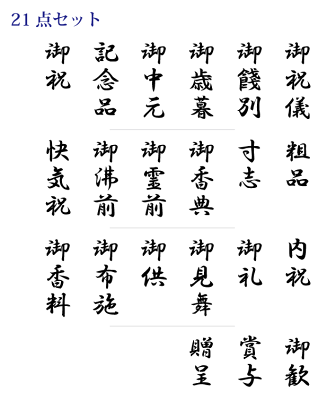 21点セット
御祝儀
御餞別
御歳暮
御中元
記念品
御祝
粗品
寸志
御香典
御霊前
御沸前
快気祝
内祝
御礼
御見舞
御供
御布施
御香料
御歓
賞与
贈呈